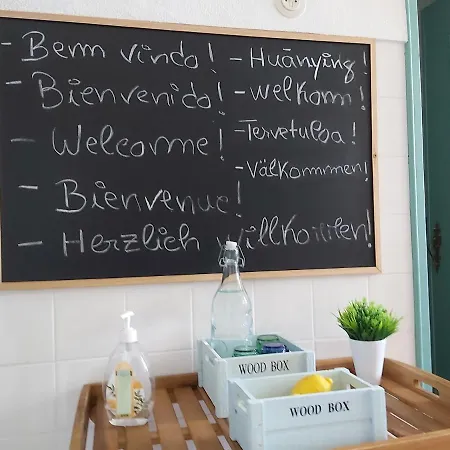 - Bem vindo!
- Bienvenido!
- Welcome!
- Bienvenue!
- Herzlich willkommen!
- Huānyíng!
- Welkom!
- Tervetuloa!
- Välkommmen!
WOOD BOX
WOOD BOX